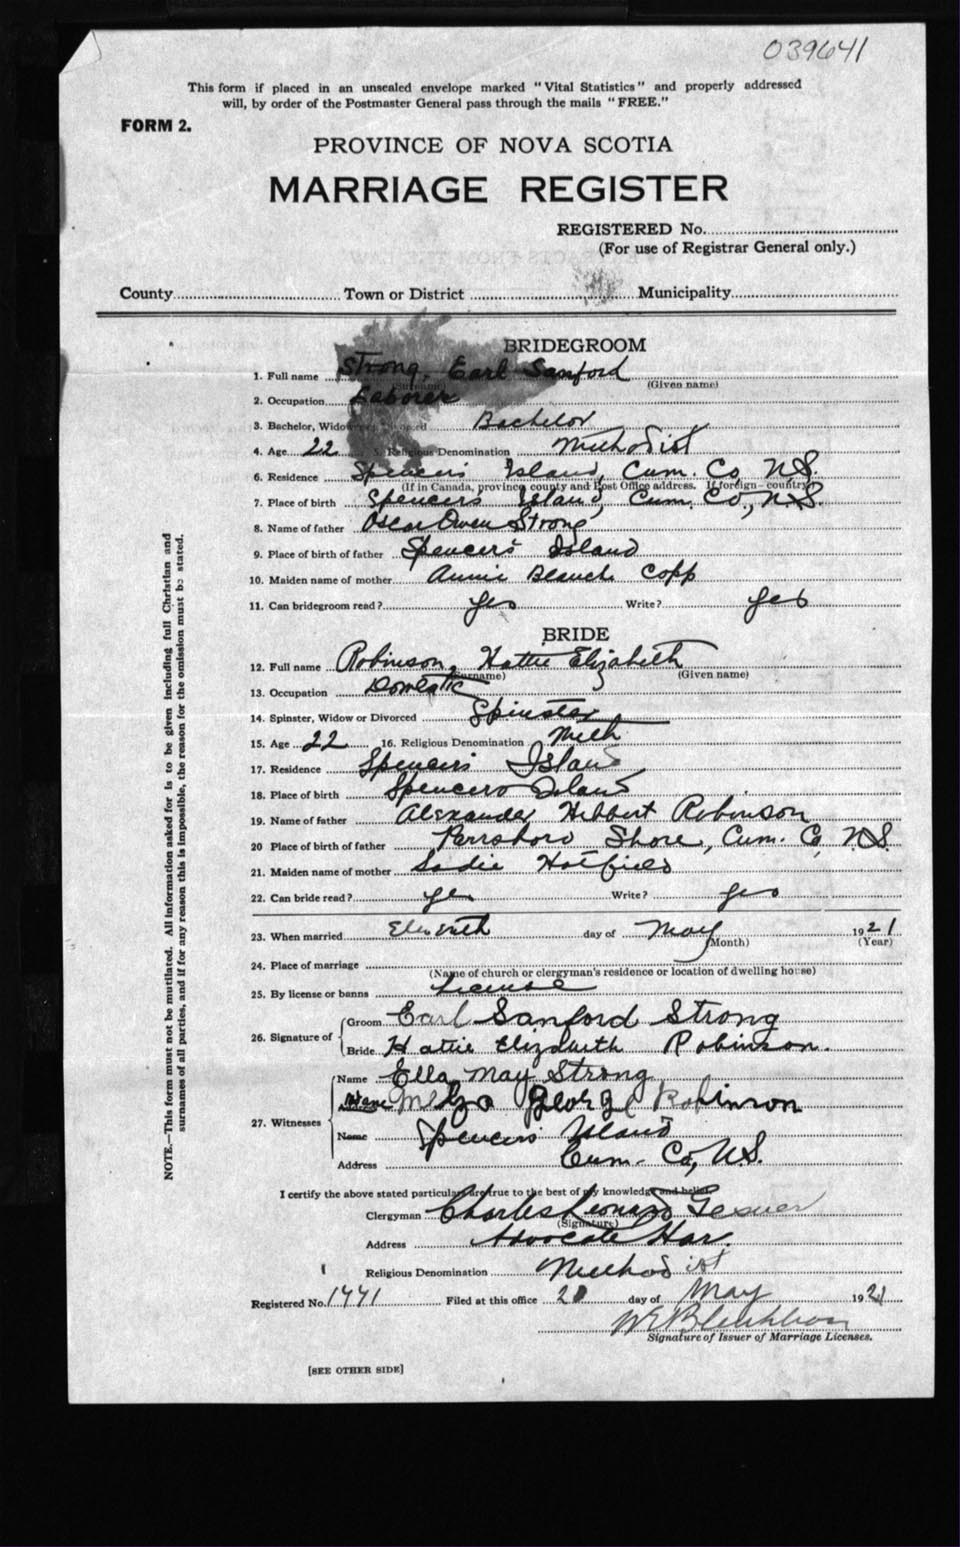 039641
This form if placed in an unsealed envelope marked "Vital Statistics" and properly addressed
will, by order of the Postmaster General pass through the mails "FREE."
FORM 2.
PROVINCE OF NOVA SCOTIA
MARRIAGE REGISTER
REGISTERED No.
(For use of Registrar General only.)
County Town or District Municipality
BRIDEGROOM
1. Full name Strong, Earl Sanford
(Surname) (Given name)
2. Occupation Laborer
3. Bachelor, Widower or Divorced Bachelor
4. Age 22 5. Religious Denomination Methodist
6. Residence Spencers Island, Cum. Co, N.S.
(If in Canada, province, county and Post Office address. If foreign—country)
7. Place of birth Spencers Island, Cum. Co., N.S.
8. Name of father Oscar Owen Strong
9. Place of birth of father Spencer's Island
10. Maiden name of mother Annie Blanch Copp
11. Can bridegroom read? yes Write? yes
BRIDE
12. Full name Robinson, Hattie Elizabeth
(Surname) (Given name)
13. Occupation Domestic
14. Spinster, Widow or Divorced Spinster
15. Age 22 16. Religious Denomination Meth
17. Residence Spencers Island
18. Place of birth Spencers Island
19. Name of father Alexander Hibbert Robinson
20 Place of birth of father Parrsboro Shore, Cum. Co, N.S.
21. Maiden name of mother Sadie Hatfield
22. Can bride read? yes Write? yes
23. When married day of May 1921
(Month) (Year)
24. Place of marriage
(Name of church or clergyman's residence or location of dwelling house)
25. By license or banns License
26. Signature of
Groom Earl Sanford Strong
Bride Hattie Elizabeth Robinson.
27. Witnesses
Name Ella May Strong
George Robinson
Name Spencers Island
Address Cum. Co, N.S.
I certify the above stated particulars are true to the best of my knowledge and belief.
Clergyman Charles Leonard Gesner
(Signature)
Address Advocate Har.
Religious Denomination Methodist
Registered No. 1441 Filed at this office day of May 1921
Signature of Issuer of Marriage Licenses.
[SEE OTHER SIDE]
NOTE.—This form must not be mutilated. All information asked for is to be given including full Christian and
surnames of all parties, and if for any reason this is impossible, the reason for the omission must be stated.